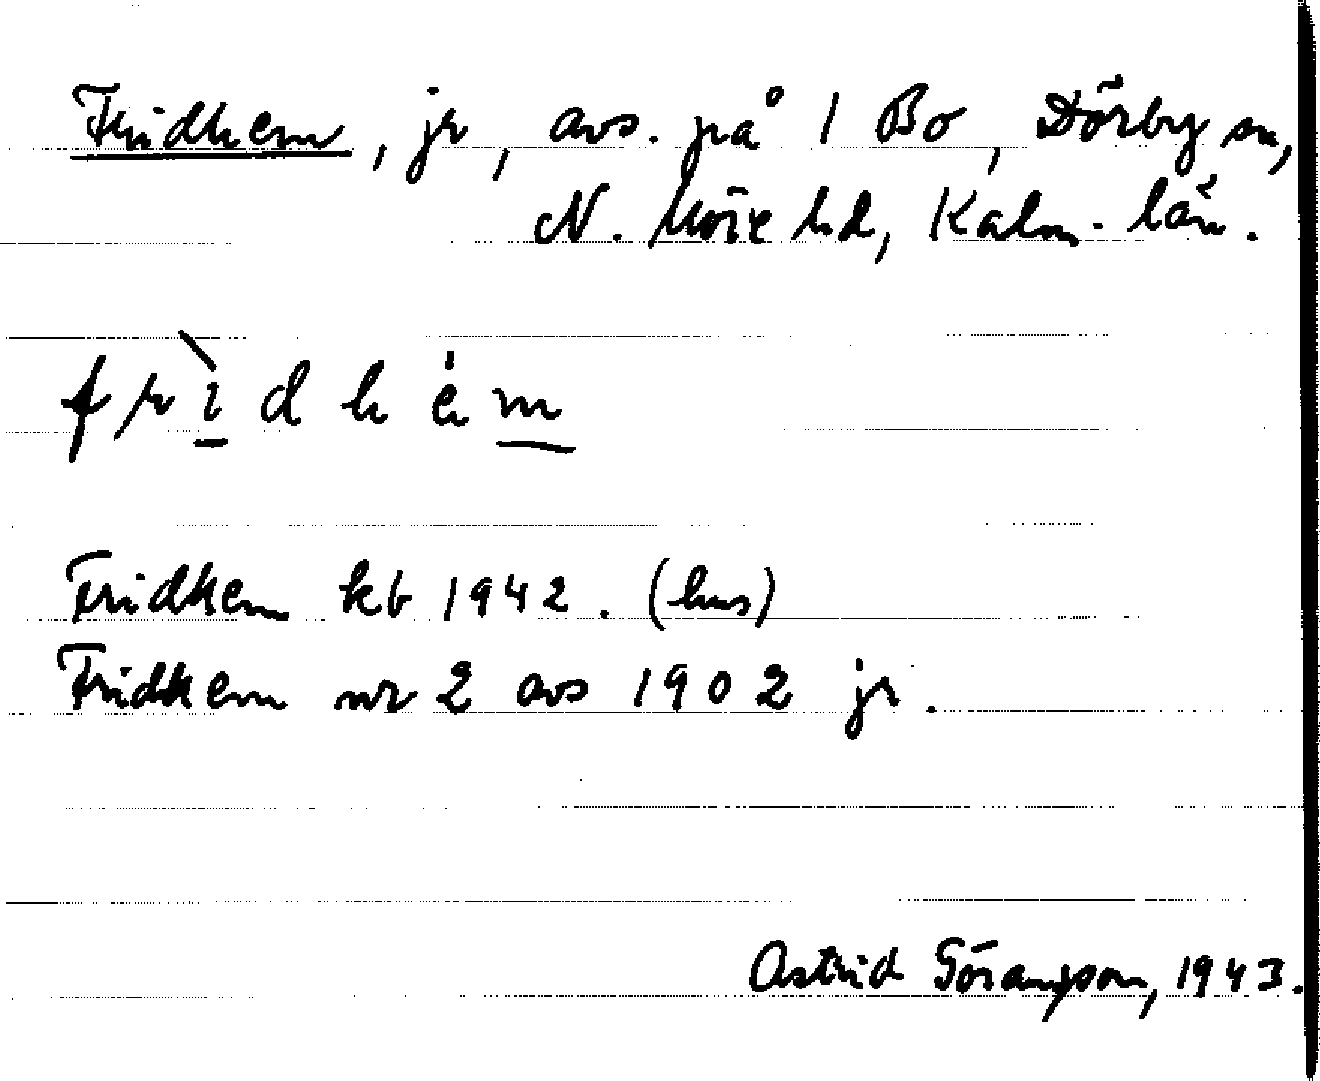 Fridhem, jr, avs. på 1 Bo, Dörby sn,
N. Möre hd, Kalm. län.
frìdhém
Fridhem kb 1942. (hus)
Fridhem nr 2 avs 1902 jr.
Astrid Göransson, 1943.